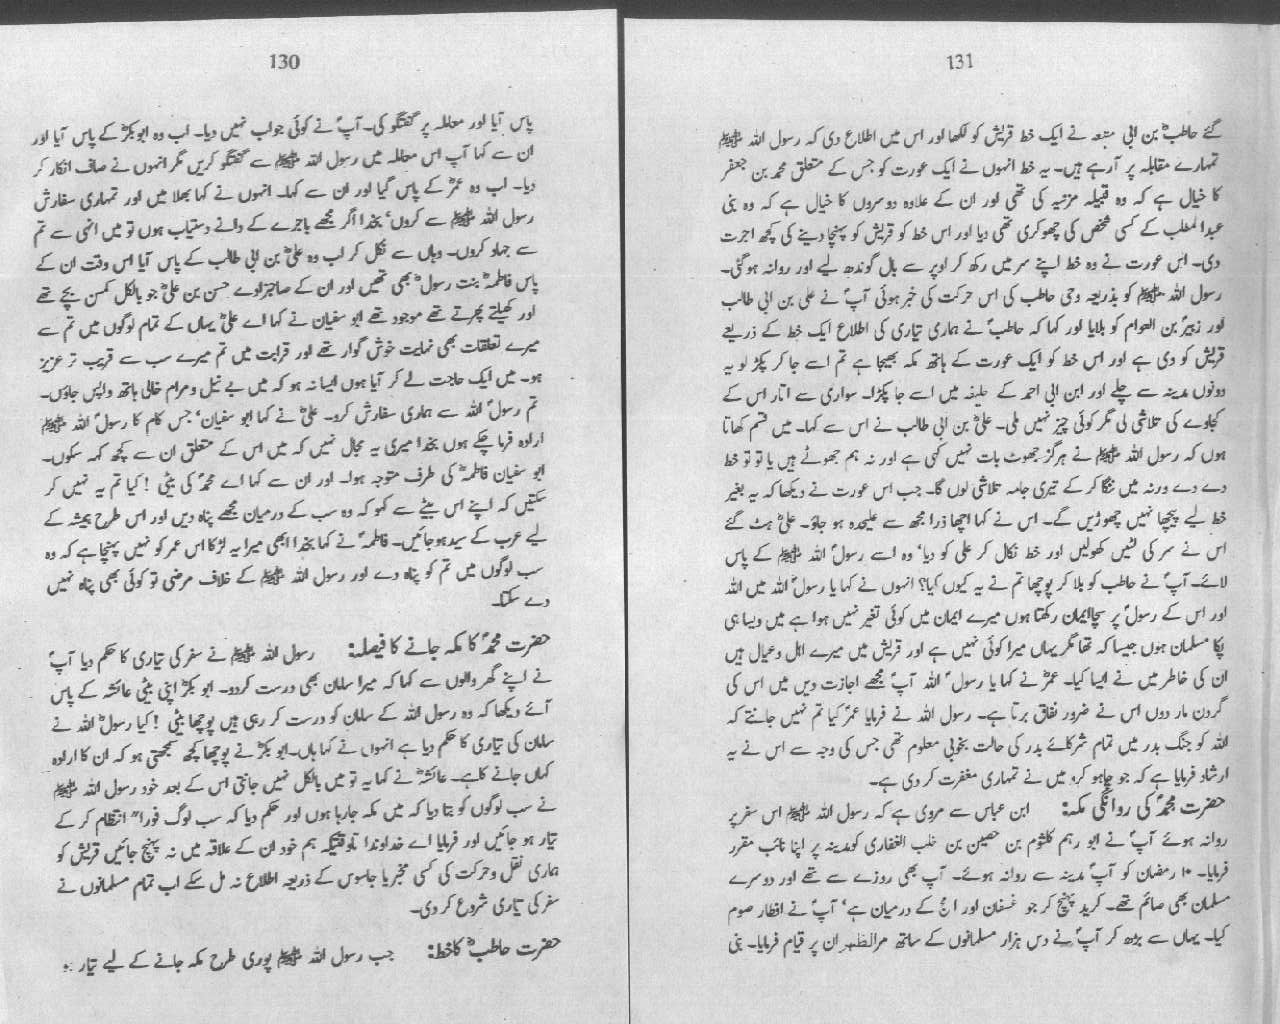 130
پاس آیا اور معاملہ پر گفتگو کی۔ آپؐ نے کوئی جواب نہیں دیا۔ اب وہ ابوبکرؓ کے پاس آیا اور
ان سے کہا آپ اس معاملہ میں رسول اللہ ﷺ سے گفتگو کریں مگر انہوں نے صاف انکار کر
دیا۔ اب وہ عمرؓ کے پاس گیا اور ان سے کہا۔ انہوں نے کہا بھلا میں اور تمہاری سفارش
رسول اللہ ﷺ سے کروں' بخدا اگر مجھے باجرے کے دانے دستیاب ہوں تو میں انہی سے تم
سے جہاد کروں۔ وہاں سے نکل کر اب وہ علیؓ بن ابی طالب کے پاس آیا اس وقت ان کے
پاس فاطمہؓ بنت رسولؐ بھی تھیں اور ان کے صاحبزادے حسن بن علیؓ جو بالکل کمسن بچے تھے
اور کھیلتے پھرتے تھے موجود تھے ابو سفیان نے کہا اے علیؓ یہاں کے تمام لوگوں میں تم سے
میرے تعلقات بھی نہایت خوش گوار تھے اور قرابت میں تم میرے سب سے قریب تر عزیز
ہو۔ میں ایک حاجت لے کر آیا ہوں ایسا نہ ہو کہ میں بے نیل و مرام خالی ہاتھ واپس جاؤں۔
تم رسولؐ اللہ سے ہماری سفارش کرو۔ علیؓ نے کہا ابو سفیان' جس کام کا رسولؐ اللہ ﷺ
ارادہ فرما چکے ہوں بخدا میری یہ مجال نہیں کہ میں اس کے متعلق ان سے کچھ کہہ سکوں۔
ابو سفیان فاطمہؓ کی طرف متوجہ ہوا۔ اور ان سے کہا اے محمدؐ کی بیٹی ! کیا تم یہ نہیں کر
سکتیں کہ اپنے اس بیٹے سے کہو کہ وہ سب کے درمیان مجھے پناہ دیں اور اس طرح ہمیشہ کے
لیے عرب کے سید ہو جائیں۔ فاطمہؓ نے کہا بخدا ابھی میرا یہ لڑکا اس عمر کو نہیں پہنچا ہے کہ وہ
سب لوگوں میں تم کو پناہ دے اور رسول اللہ ﷺ کے خلاف مرضی تو کوئی بھی پناہ نہیں
دے سکتا۔
حضرت محمدؐ کا مکہ جانے کا فیصلہ: رسول اللہ ﷺ نے سفر کی تیاری کا حکم دیا آپؐ
نے اپنے گھر والوں سے کہا کہ میرا سامان بھی درست کردو۔ ابو بکرؓ اپنی بیٹی عائشہ کے پاس
آئے دیکھا کہ وہ رسول اللہ کے سامان کو درست کر رہی ہیں پوچھا بیٹی ! کیا رسولؐ اللہ نے
سامان کی تیاری کا حکم دیا ہے انہوں نے کہا ہاں۔ ابو بکرؓ نے پوچھا کچھ سمجھتی ہو کہ ان کا ارادہ
کہاں جانے کا ہے۔ عائشہؓ نے کہا یہ تو میں بالکل نہیں جانتی اس کے بعد خود رسول اللہ ﷺ
نے سب لوگوں کو بتا دیا کہ میں مکہ جا رہا ہوں اور حکم دیا کہ سب لوگ فورا" انتظام کر کے
تیار ہو جائیں اور فرمایا اے خداوندا تاوقتیکہ ہم خود ان کے علاقہ میں نہ پہنچ جائیں قریش کو
ہماری نقل و حرکت کی کسی مخبر یا جاسوس کے ذریعہ اطلاع نہ مل سکے اب تمام مسلمانوں نے
سفر کی تیاری شروع کر دی۔
حضرت حاطبؓ کا خط: جب رسول اللہ ﷺ پوری طرح مکہ جانے کے لیے تیار ہو
131
گئے حاطبؓ بن ابی متبعہ نے ایک خط قریش کو لکھا اور اس میں اطلاع دی کہ رسول اللہ ﷺ
تمہارے مقابلہ پر آ رہے ہیں۔ یہ خط انہوں نے ایک عورت کو جس کے متعلق محمد بن جعفر
کا خیال ہے کہ وہ قبیلہ مزنیہ کی تھی اور ان کے علاوہ دوسروں کا خیال ہے کہ وہ بنی
عبدالمطلب کے کسی شخص کی چھوکری تھی دیا اور اس خط کو قریش کو پہنچا دینے کی کچھ اجرت
دی۔ اس عورت نے وہ خط اپنے سر میں رکھ کر اوپر سے بال گوندھ لیے اور روانہ ہو گئی۔
رسول اللہ ﷺ کو بذریعہ وحی حاطب کی اس حرکت کی خبر ہوئی آپؐ نے علی بن ابی طالب
اور زبیرؓ بن العوام کو بلایا اور کہا کہ حاطبؓ نے ہماری تیاری کی اطلاع ایک خط کے ذریعے
قریش کو دی ہے اور اس خط کو ایک عورت کے ہاتھ مکہ بھیجا ہے تم اسے جا کر پکڑ لو یہ
دونوں مدینہ سے چلے اور ابن ابی احمد کے حلیفہ میں اسے جا پکڑا۔ سواری سے اتار اس کے
کجاوے کی تلاشی لی مگر کوئی چیز نہیں ملی۔ علیؓ بن ابی طالب نے اس سے کہا۔ میں قسم کھاتا
ہوں کہ رسول اللہ ﷺ نے ہرگز جھوٹ بات نہیں کہی ہے اور نہ ہم جھوٹے ہیں یا تو تو خط
دے دے ورنہ میں ننگا کر کے تیری جامہ تلاشی لوں گا۔ جب اس عورت نے دیکھا کہ یہ بغیر
خط لیے پیچھا نہیں چھوڑیں گے۔ اس نے کہا اچھا ذرا مجھ سے علیحدہ ہو جاؤ۔ علیؓ ہٹ گئے
اس نے سر کی لٹیں کھولیں اور خط نکال کر علی کو دیا' وہ اسے رسولؐ اللہ ﷺ کے پاس
لائے۔ آپؐ نے حاطب کو بلا کر پوچھا تم نے یہ کیوں کیا؟ انہوں نے کہا یا رسولؐ اللہ میں اللہ
اور اس کے رسولؐ پر سچا ایمان رکھتا ہوں میرے ایمان میں کوئی تغیر نہیں ہوا ہے میں ویسا ہی
پکا مسلمان ہوں جیسا کہ تھا مگر یہاں میرا کوئی نہیں ہے اور قریش میں میرے اہل و عیال ہیں
ان کی خاطر میں نے ایسا کیا۔ عمرؓ نے کہا یا رسولؐ اللہ آپؐ مجھے اجازت دیں میں اس کی
گردن مار دوں اس نے ضرور نفاق برتا ہے۔ رسول اللہ نے فرمایا عمرؓ کیا تم نہیں جانتے کہ
اللہ کو جنگ بدر میں تمام شرکائے بدر کی حالت بخوبی معلوم تھی جس کی وجہ سے اس نے یہ
ارشاد فرمایا ہے کہ جو چاہو کرو میں نے تمہاری مغفرت کر دی ہے۔
حضرت محمدؐ کی روانگی مکہ: ابن عباس سے مروی ہے کہ رسول اللہ ﷺ اس سفر پر
روانہ ہوئے آپؐ نے ابو رہم کلثوم بن حصین بن خلب الغفاری کو مدینہ پر اپنا نائب مقرر
فرمایا۔ ۱۰ رمضان کو آپؐ مدینہ سے روانہ ہوئے۔ آپ بھی روزے سے تھے اور دوسرے
مسلمان بھی صائم تھے۔ کرید پہنچ کر جو عسفان اور امج کے درمیان ہے' آپؐ نے افطار صوم
کیا۔ یہاں سے بڑھ کر آپؐ نے دس ہزار مسلمانوں کے ساتھ مرالظہران پر قیام فرمایا۔ بنی